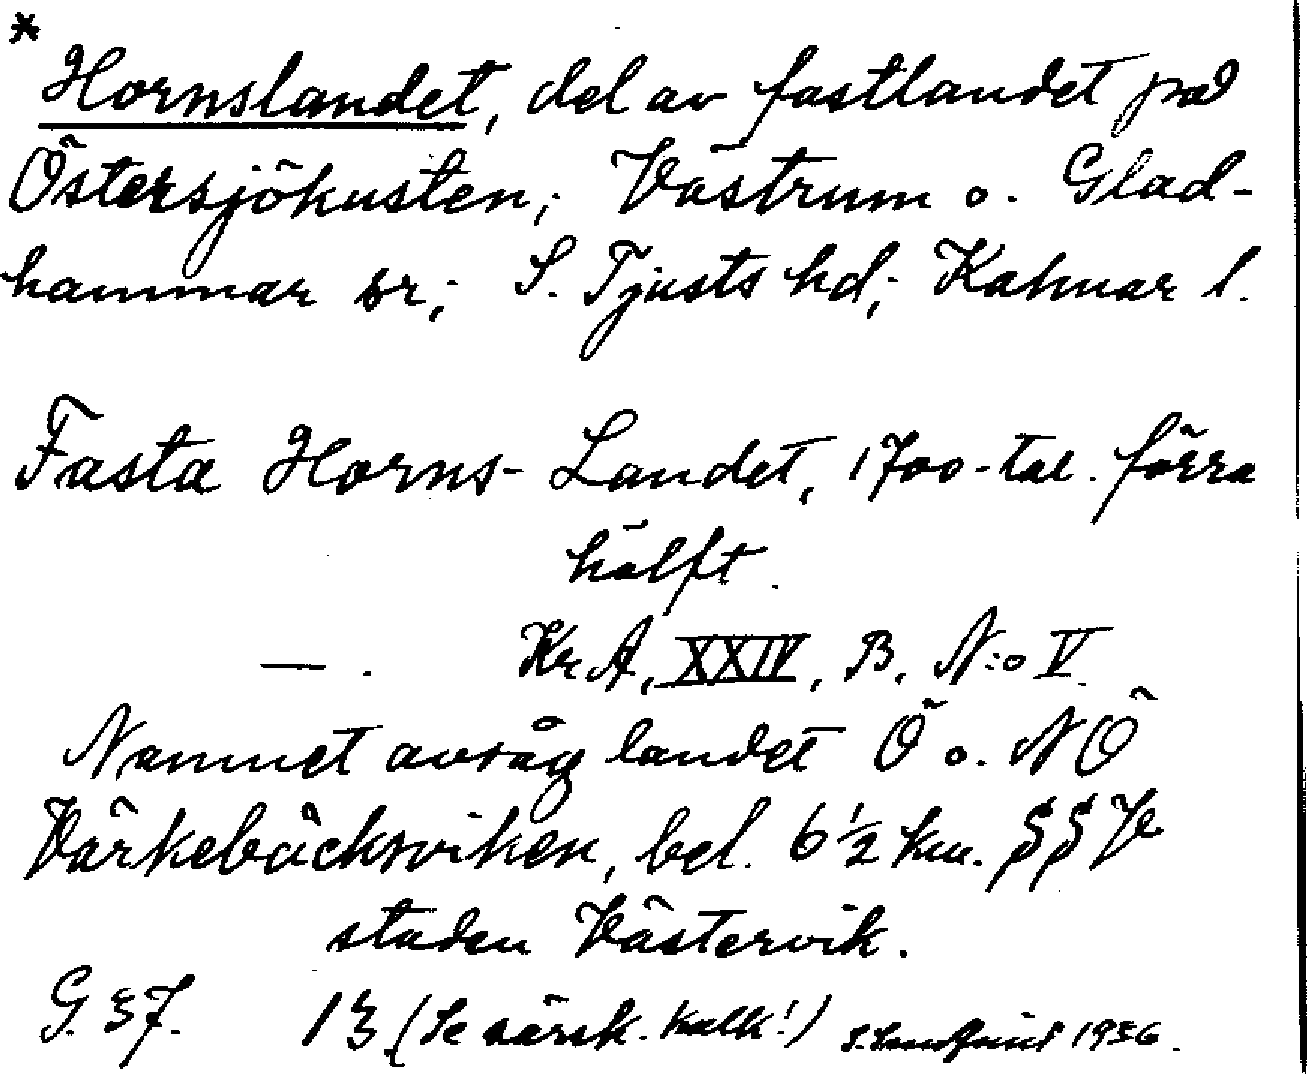 *
Hornslandet, del av fastlandet på
Östersjökusten; Västrum o. Glad-
hammar sr; S. Tjusts hd; Kalmar l.
Fasta Horns-Landet, 1700-tal. förra
hälft.
— . KrA, XXIV, B. N:o V.
Namnet avsåg landet Ö o. NÖ
Värkebäcksviken, bel. 6 ½ km. SSV
staden Västervik.
G. 37. 13. (Se särsk. kalk!) 1956.